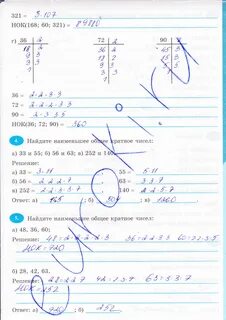 321 = 3·107
НОК(168; 60; 321) = 89880
г) 36 2 72 2 90 2
18 2 36 2 45 3
9 3 18 2 15 3
3 3 9 3 5 5
1 3 3 1
1
36 = 2·2·3·3
72 = 2·2·2·3·3
90 = 2·3·3·5
НОК(36; 72; 90) = 360
4. Найдите наименьшее общее кратное чисел:
а) 33 и 55; б) 56 и 63; в) 252 и 140
Решение:
а) 33 = 3·11 55 = 5·11
б) 56 = 2·2·2·7 63 = 3·3·7
в) 252 = 2·2·3·3·7 140 = 2·2·5·7
Ответ: а) 165 б) 504 в) 1260
5. Найдите наименьшее общее кратное чисел:
а) 48, 36, 60;
Решение: 48=2·2·2·2·3 36=2·2·3·3 60=2·2·3·5
НОК=720
б) 28, 42, 63.
Решение: 28=2·2·7 42=2·3·7 63=3·3·7
НОК=252
Ответ: а) 720; б) 252